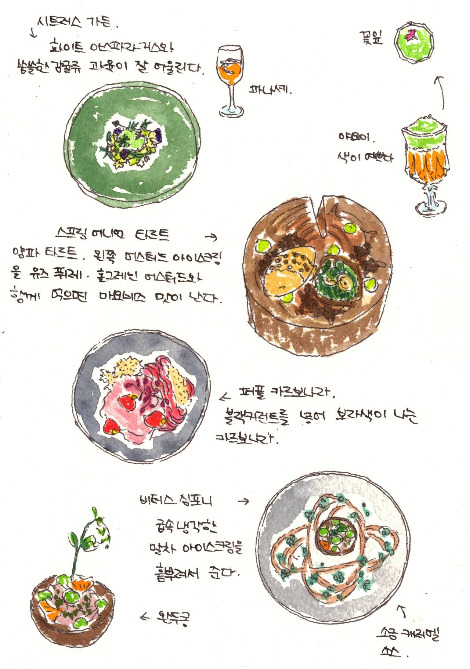 시트러스 가든.
화이트 아스파라거스와
쌉쌀한 감귤류 과육이 잘 어울린다.
파나셰.
꽃잎
야요이.
색이 예쁘다
스프링 어니언 타르트
양파 타르트. 왼쪽 머스터드 아이스크림
을 유즈 퓌레. 홀그레인 머스터드와
함께 먹으면 마요네즈 맛이 난다.
퍼플 카르보나라.
블랙커런트를 넣어 보라색이 나는
카르보나라.
비터스 심포니
급속냉각한
말차 아이스크림을
흩뿌려서 준다.
완두콩
소금 캐러멜
소스.